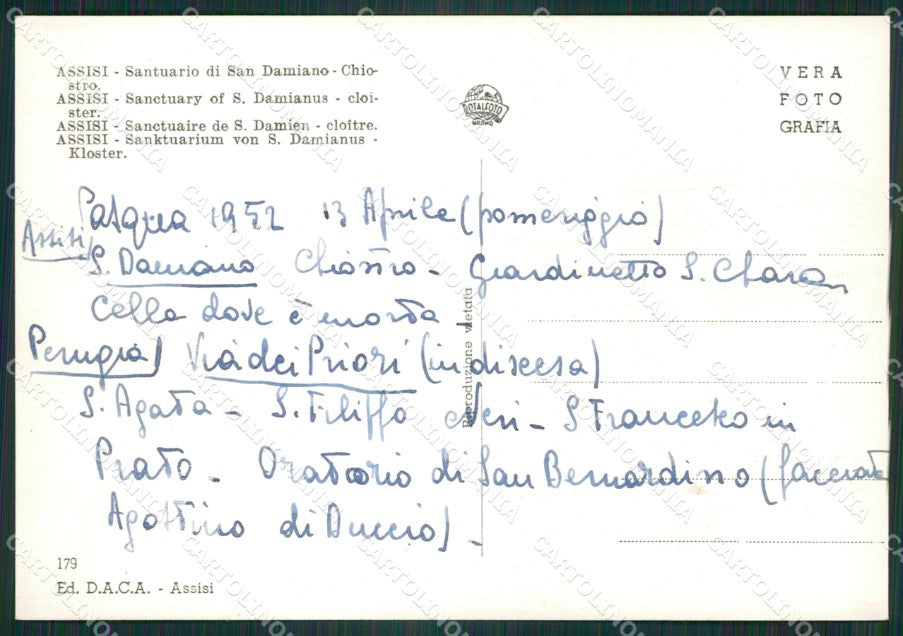 ASSISI - Santuario di San Damiano - Chio-
stro.
ASSISI - Sanctuary of S. Damianus - cloi-
ster.
ASSISI - Sanctuaire de S. Damien - cloître.
ASSISI - Sanktuarium von S. Damianus -
Kloster.
ROTALFOTO
MILANO
VERA
FOTO
GRAFIA
Pasqua 1952 13 Aprile (pomeriggio)
Assisi
S. Damiano Chiostro - Giardinetto S. Chiara
Cella dove è morta -
Perugia) Via dei Priori (in discesa)
S. Agata - S. Filippo Neri - S Francesco in
Prato - Oratorio di San Bernardino (facciata
Agostino di Duccio) -
Riproduzione vietata
179
Ed. D.A.C.A. - Assisi
CARTOLINOMANIA